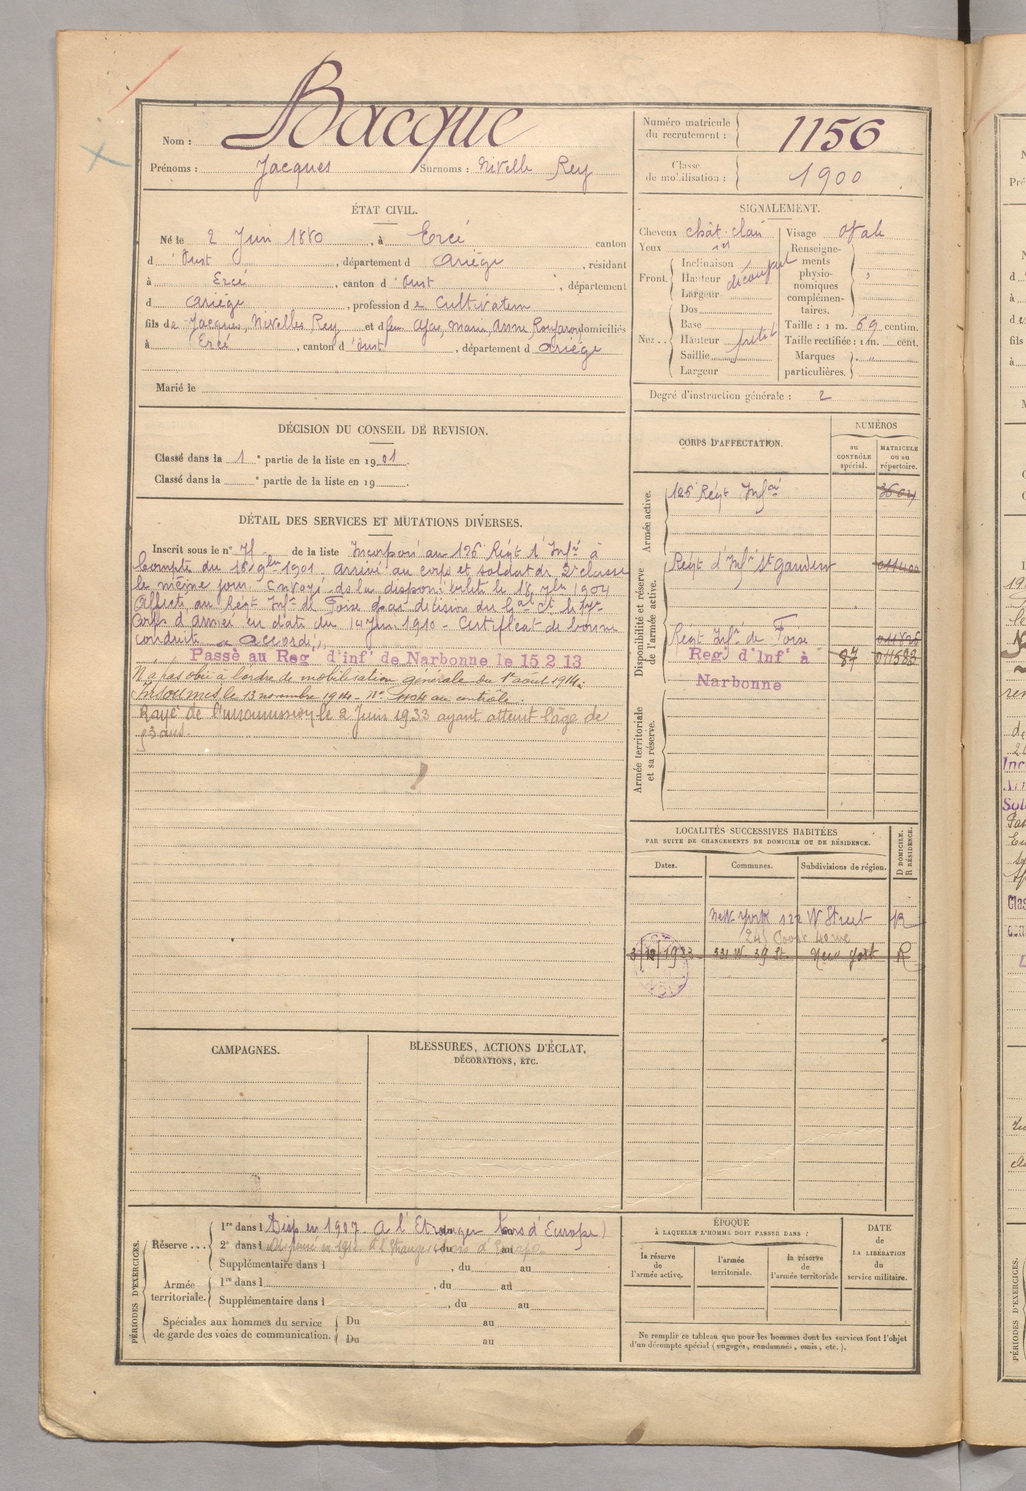 Nom : Bacque
Prénoms : Jacques Surnoms : Nivelle Rey
Numéro matricule du recrutement : 1156
Classe de mobilisation : 1900
ÉTAT CIVIL.
Né le 2 Juin 1880, à Ercé canton
d'Oust, département d Ariège, résidant
à Ercé, canton d'Oust, département
d Ariège, profession de Cultivateur
fils de Jacques, Nivelles Rey et d feu domiciliés
à Ercé, canton d'Oust, département d Ariège
Marié le
SIGNALEMENT.
Cheveux chât. clair Visage ovale
Yeux id
Front. Inclinaison
Hauteur découvert
Largeur
Nez.. Dos
Base
Hauteur petit
Saillie
Largeur
Renseignements physionomiques complémentaires. "
Taille : 1 m. 69 centim.
Taille rectifiée : 1 m. cent.
Marques particulières. "
Degré d'instruction générale : 2
DÉCISION DU CONSEIL DE REVISION.
Classé dans la 1e partie de la liste en 1901.
Classé dans la e partie de la liste en 19 .
DÉTAIL DES SERVICES ET MUTATIONS DIVERSES.
Inscrit sous le n° 71 de la liste Incorporé au 126e Régt d'Infie à
compter du 16 9bre 1901 arrivé au corps et soldat de 2e classe
le même jour. Envoyé ds la disponibilité le 18 7bre 1904
Affecté au Régt Infie de Foix par décision du Gal Ct le 17e
Corps d'armée en date du 14 Juin 1910 - Certificat de bonne
conduite "accordé"
Passé au Reg' d'inf' de Narbonne le 15 2 13
N'a pas obéi à l'ordre de mobilisation générale du 1er août 1914.
Insoumis le 13 novembre 1914 - N° 1104 au contrôle.
Rayé de l'insoumission le 2 Juin 1933 ayant atteint l'âge de
53 ans.
CORPS D'AFFECTATION.
NUMÉROS
AU CONTRÔLE spécial.
MATRICULE ou au répertoire.
Armée active.
126e Régt Infie
Disponibilité et réserve de l'armée active.
Régt d'Infie St gaudens
Régt Infie de Foix
Reg' d'Inf' à Narbonne 87 011588
Armée territoriale et sa réserve.
LOCALITÉS SUCCESSIVES HABITÉES
PAR SUITE DE CHANGEMENTS DE DOMICILE OU DE RÉSIDENCE.
Dates. Communes. Subdivisions de région. D DOMICILE. R RÉSIDENCE.
New York 122 W Street R
3/12/1923 321 W. 39 St. New York R
CAMPAGNES.
BLESSURES, ACTIONS D'ÉCLAT,
DÉCORATIONS, ETC.
PÉRIODES D'EXERCICES.
Réserve ... 1re dans l Disp en 1907. A l'Etranger (hors d'Europe)
2e dans l Dispensé en 191 à l'Etranger (hors d'Europe du au
Supplémentaire dans l , du au
Armée territoriale. 1re dans l , du au
Supplémentaire dans l , du au
Spéciales aux hommes du service de garde des voies de communication. Du au
Du au
ÉPOQUE
À LAQUELLE L'HOMME DOIT PASSER DANS :
la réserve de l'armée active.
l'armée territoriale.
la réserve de l'armée territoriale
DATE de LA LIBÉRATION du service militaire.
Ne remplir ce tableau que pour les hommes dont les services font l'objet
d'un décompte spécial (engagés, condamnés, omis, etc.).
PÉRIODES D'EXERCICES.